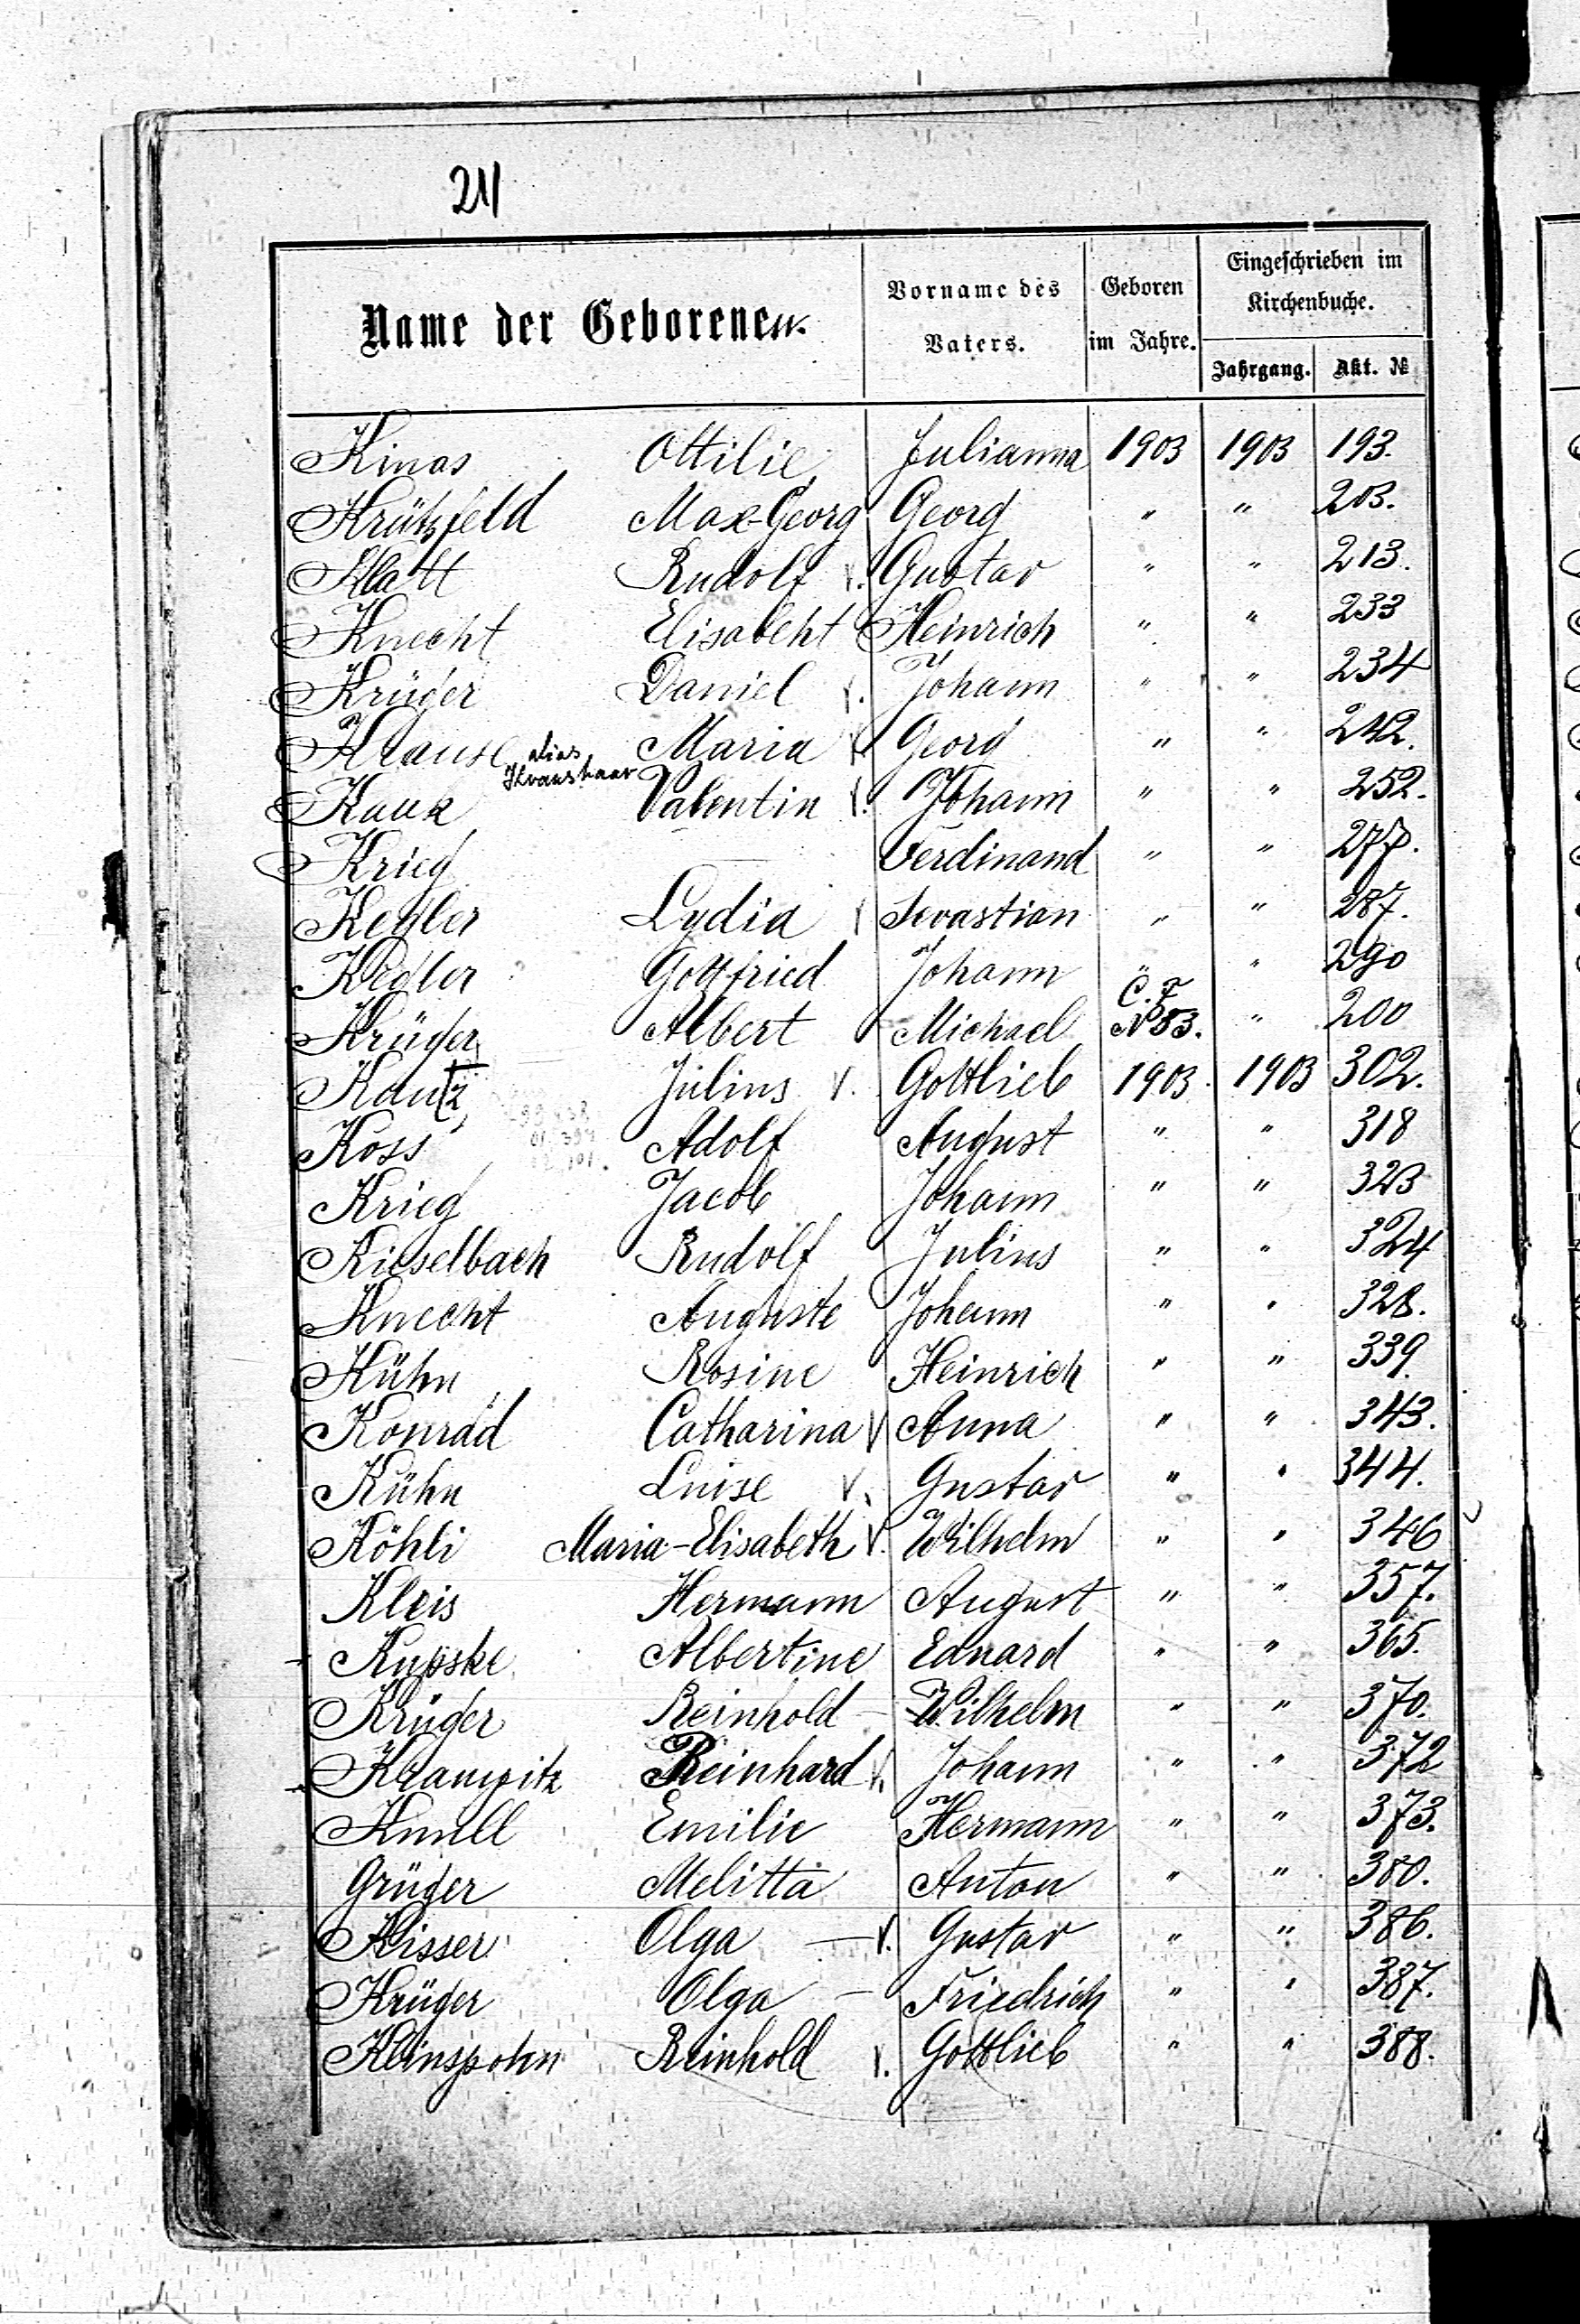 211
Name der Geborenen.
Vorname des Vaters.
Geboren im Jahre.
Eingeschrieben im Kirchenbuche.
Jahrgang. Akt. №
Kinas Ottilie Julianna 1903 1903 193.
Krützfeld Max-Georg Georg " " 203.
Klatt Rudolf v. Gustav " " 213.
Knecht Elisabeht Heinrich " " 233
Krüger Daniel v. Johann " " 234
Krause alias Kraushaar Maria v Georg " " 242.
Kauk Valentin v. Johann " " 252.
Krieg — Ferdinand " " 277.
Kegler Lydia v Sevastian " " 287.
Kegler Gottfried Johann " " 290
Krüger Albert Michael C. F № 53. " 200
Kautz Julius v. Gottlieb 1903 1903 302.
Koss Adolf August " " 318
Krieg Jacob Johann " " 323
Kieselbach Rudolf Julius " " 324
Knecht Auguste Johann " " 328.
Kühn Rosine Heinrich " " 339.
Konrad Catharina v Anna " " 343.
Kühn Luise v. Gustav " " 344.
Köhli Maria-Elisabeth v. Wilhelm " " 346
Kleis Hermann August " " 357.
Kupske Albertine Eduard " " 365.
Krüger Reinhold – Wilhelm " " 370.
Krampitz Reinhard v. Johann " " 372
Knull Emilie Hermann " " 373.
Grüger Melitta Anton " " 380.
Kisser Olga — v. Gustav " " 386.
Krüger Olga – Friedrich " " 387.
Klinspohn Reinhold v. Gottlieb " " 388.